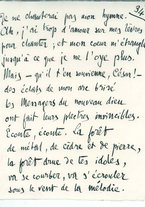 34
Je ne chanterai pas mon hymne.
Oh, j'ai trop d'amour sur mes lèvres
pour chanter, et mon cœur m'étrangle
jusqu'à ce que je ne l'oye plus.
Mais — qu'il t'en souvienne, César! —
des éclats de mon arc brisé
les Messagers du nouveau dieu
ont fait leurs plectres invincibles.
Écoute, écoute. La forêt
de métal, de cèdre et de pierre,
la forêt drue de tes idoles,
va se courber, va s'écrouler
sous le vent de la mélodie.